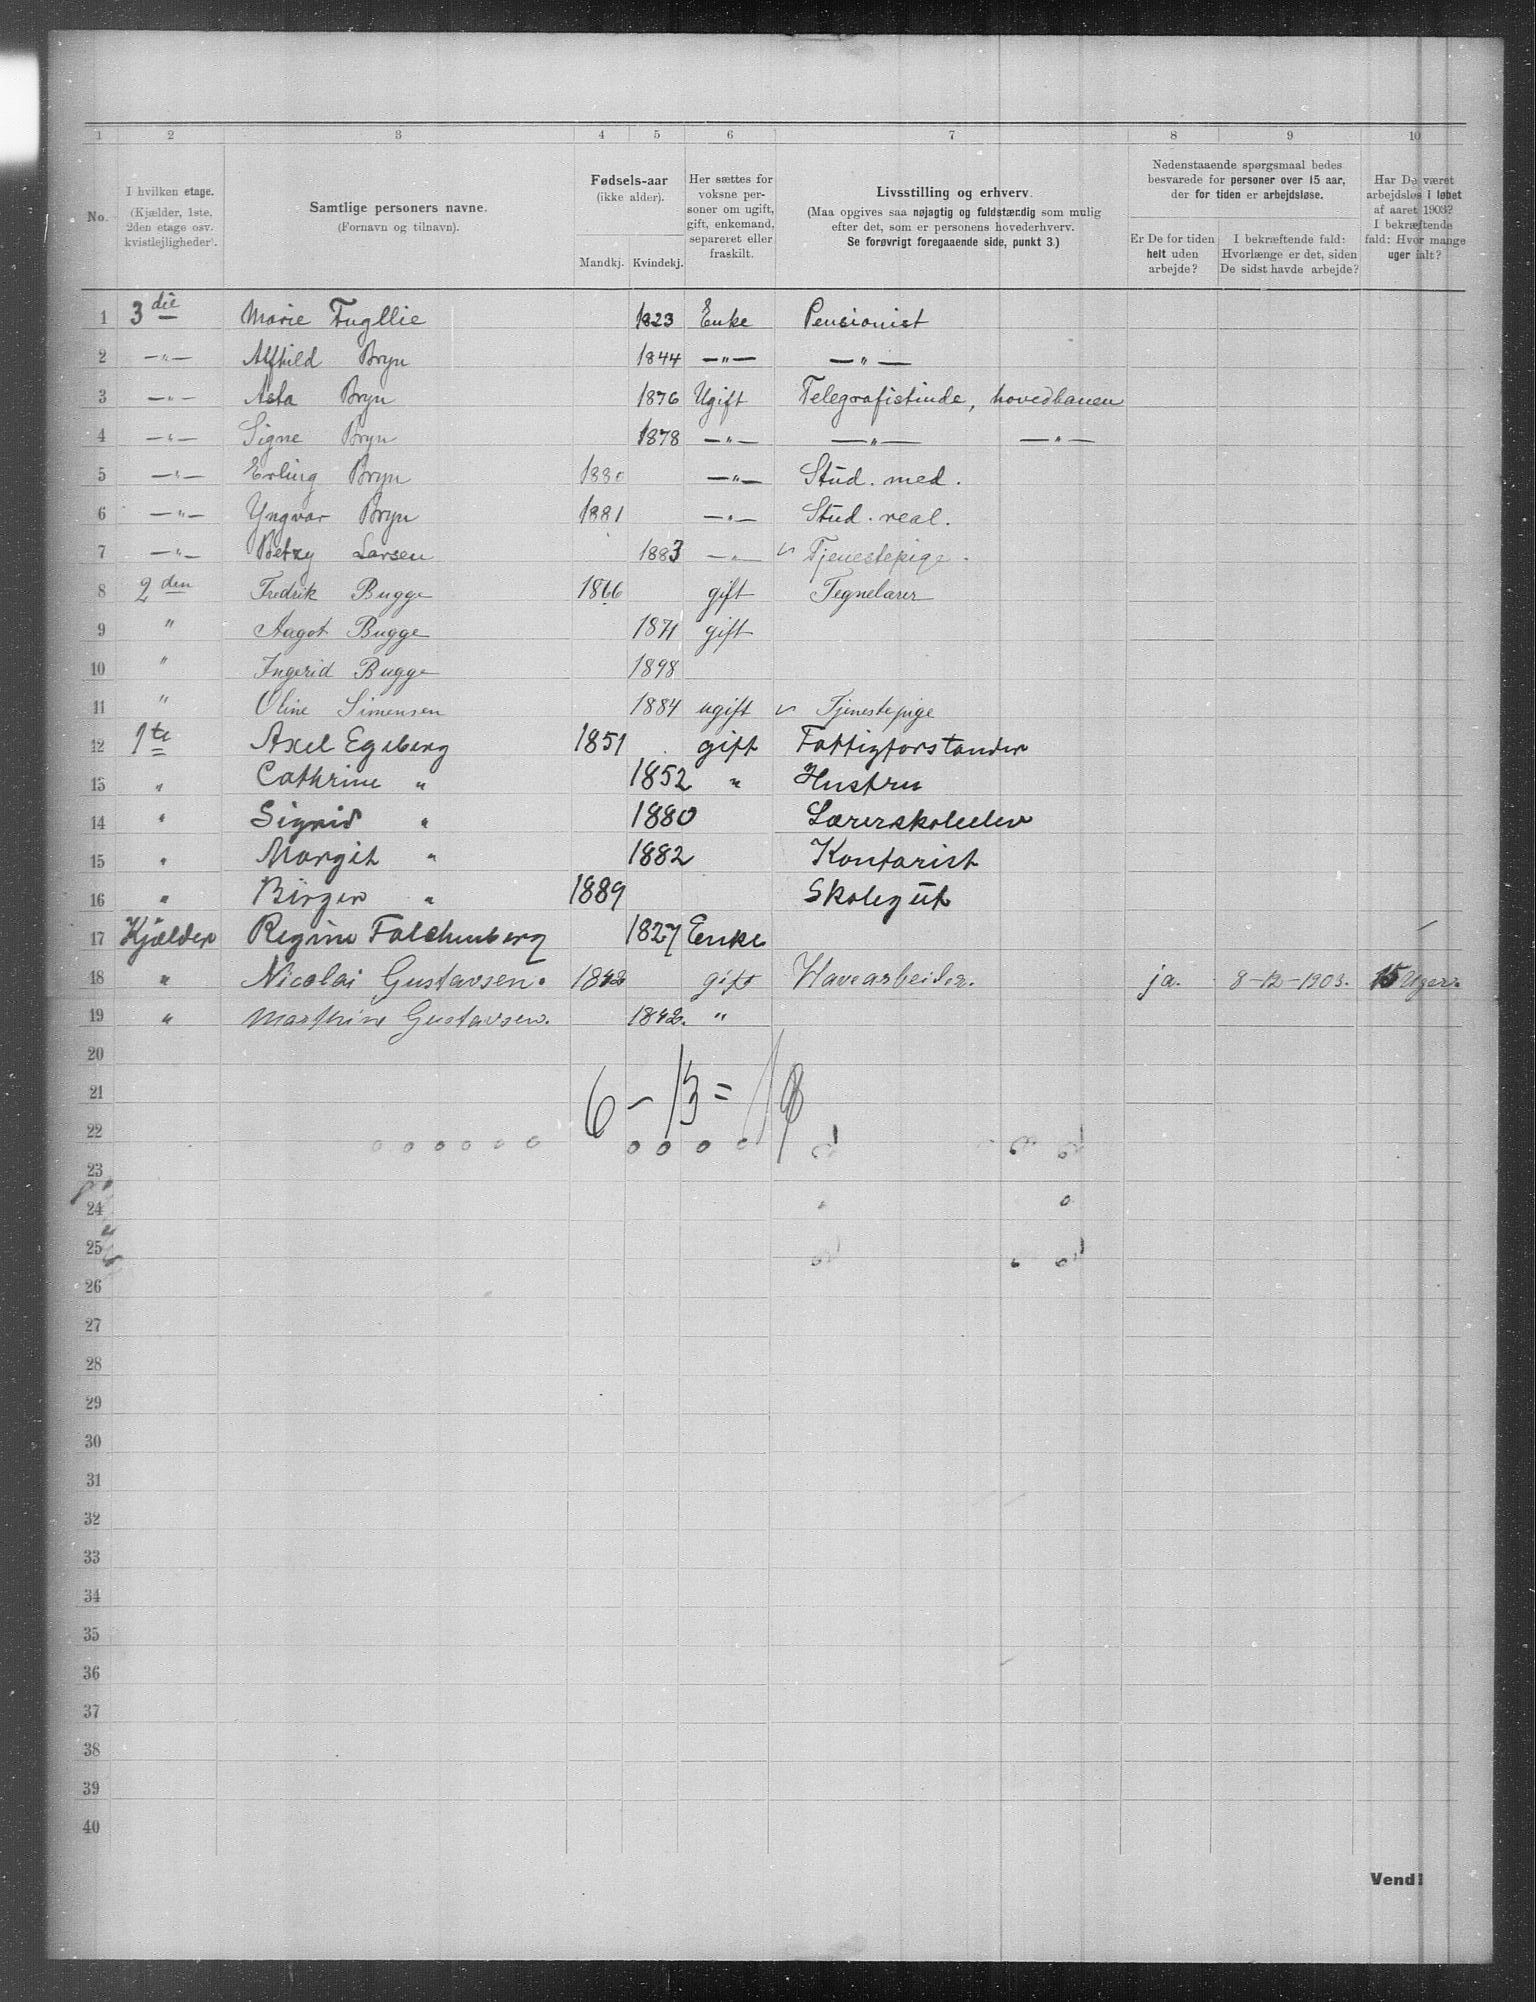 1 2 3 4 5 6 7 8 9 10
No.
I hvilken etage.
(Kjælder, 1ste,
2den etage osv.
kvistlejligheder).
Samtlige personers navne.
(Fornavn og tilnavn).
Fødsels-aar
(ikke alder).
Mandkj. Kvindekj.
Her sættes for
voksne per-
soner om ugift,
gift, enkemand,
separeret eller
fraskilt.
Livsstilling og erhverv.
(Maa opgives saa nøjagtig og fuldstærdig som mulig
efter det, som er personens hovederhverv.
Se forøvrigt foregaaende side, punkt 3.)
Nedenstaaende spørgsmaal bedes
besvarede for personer over 15 aar,
der for tiden er arbejdsløse.
Er De for tiden
helt uden
arbejde?
I bekræftende fald:
Hvorlænge er det, siden
De sidst havde arbejde?
Har De været
arbejdsløs i løbet
af aaret 1903?
I bekræftende
fald: Hvor mange
uger ialt?
1 3die Marie Fugllie 1823 Enke Pensionist
2 —"— Alfhild Bryn 1844 —"— —"—
3 —"— Asta Bryn 1876 Ugift Telegrafistinde, hovedbanen
4 —"— Signe Bryn 1878 —"— —"— —"—
5 —"— Erling Bryn 1880 —"— Stud. med.
6 —"— Yngvar Bryn 1881 —"— Stud. real.
7 —"— Betzy Larsen 1883 —"— Tjenestepige.
8 2den Fredrik Bugge 1866 gift Tegnelærer
9 " Aagot Bugge 1871 gift
10 " Ingerid Bugge 1898
11 " Oline Simensen 1884 ugift Tjenestepige
12 1te Axel Egeberg 1851 gift Fattigforstander
13 " Cathrine " 1852 " Hustru
14 " Sigrid " 1880 Lærerskoleelev
15 " Margit " 1882 Kontorist
16 " Birger " 1889 Skolegut
17 Kjælder Regine Falchenberg 1827 Enke
18 " Nicolai Gustavsen. 1842 gift Havearbeider. ja. 8-12-1903. 15 Uger.
19 " Marthine Gustavsen. 1842. "
20
21 6 – 13 = 19
22
23
24
25
26
27
28
29
30
31
32
33
34
35
36
37
38
39
40
Vend!